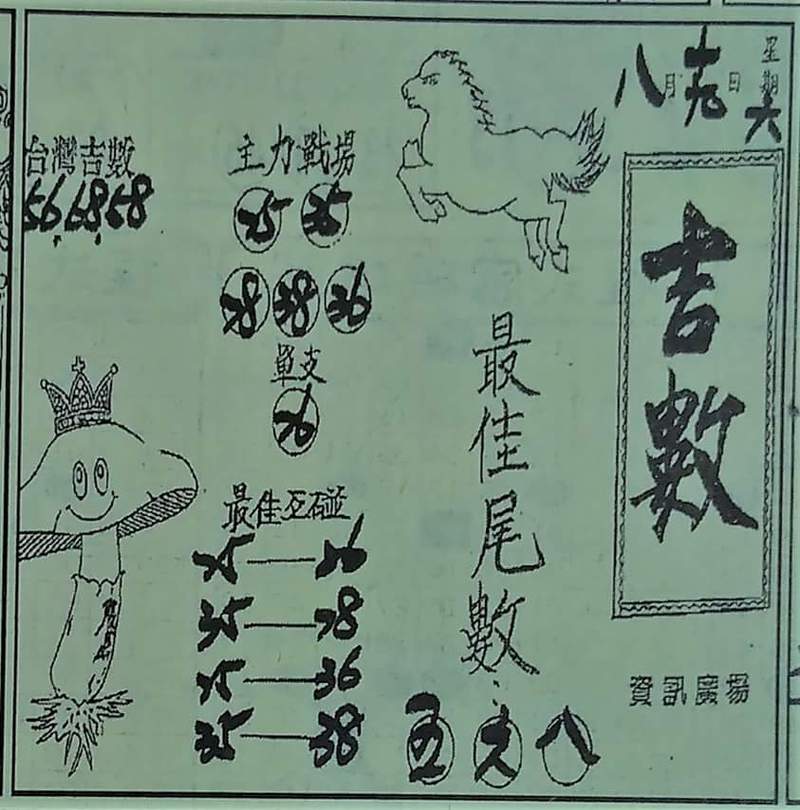 八月十九日
星期六
吉數
資訊廣場
最佳尾數:
五 六 八
主力戰場
25 35
28 38
單支
最佳互碰
25
35 — 28
25 — 36
35 — 38
台灣吉數
56.68.58